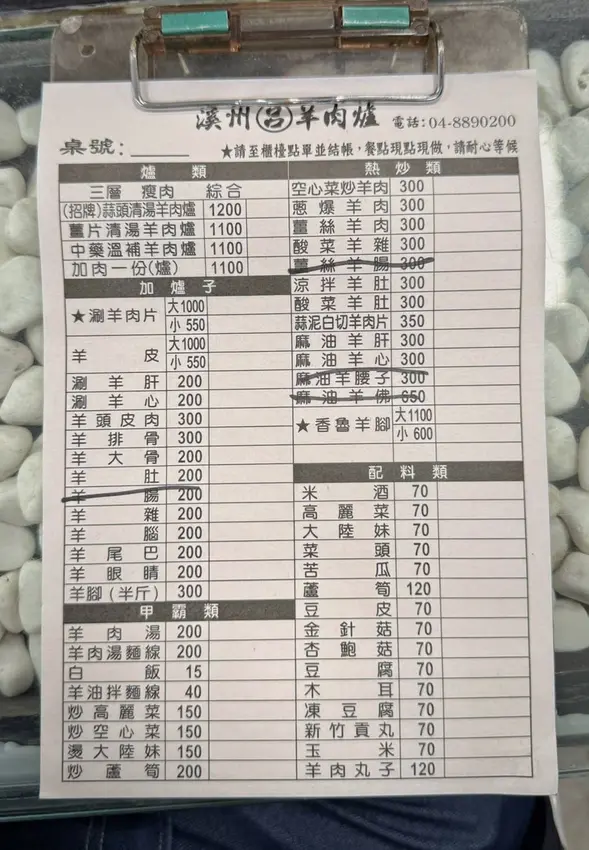 溪州 呂 羊肉爐 電話:04-8890200
桌號:
★請至櫃檯點單並結帳，餐點現點現做，請耐心等候
爐類
三層 瘦肉 綜合
(招牌)蒜頭清湯羊肉爐 1200
薑片清湯羊肉爐 1100
中藥溫補羊肉爐 1100
加肉一份(爐) 1100
加爐子
★涮羊肉片 大1000
小 550
羊皮 大1000
小 550
涮羊肝 200
涮羊心 200
羊頭皮肉 300
羊排骨 300
羊大骨 200
羊肚 200
羊腸 200
羊雜 200
羊腦 200
羊尾巴 200
羊眼睛 200
羊腳(半斤) 300
甲霸類
羊肉湯 200
羊肉湯麵線 200
白飯 15
羊油拌麵線 40
炒高麗菜 150
炒空心菜 150
燙大陸妹 150
炒蘆筍 200
熱炒類
空心菜炒羊肉 300
蔥爆羊肉 300
薑絲羊肉 300
酸菜羊雜 300
薑絲羊腸 300
涼拌羊肚 300
酸菜羊肚 300
蒜泥白切羊肉片 350
麻油羊肝 300
麻油羊心 300
麻油羊腰子 300
麻油羊佛 650
★香魯羊腳 大1100
小 600
配料類
米酒 70
高麗菜 70
大陸妹 70
菜頭 70
苦瓜 70
蘆筍 120
豆皮 70
金針菇 70
杏鮑菇 70
豆腐 70
木耳 70
凍豆腐 70
新竹貢丸 70
玉米 70
羊肉丸子 120